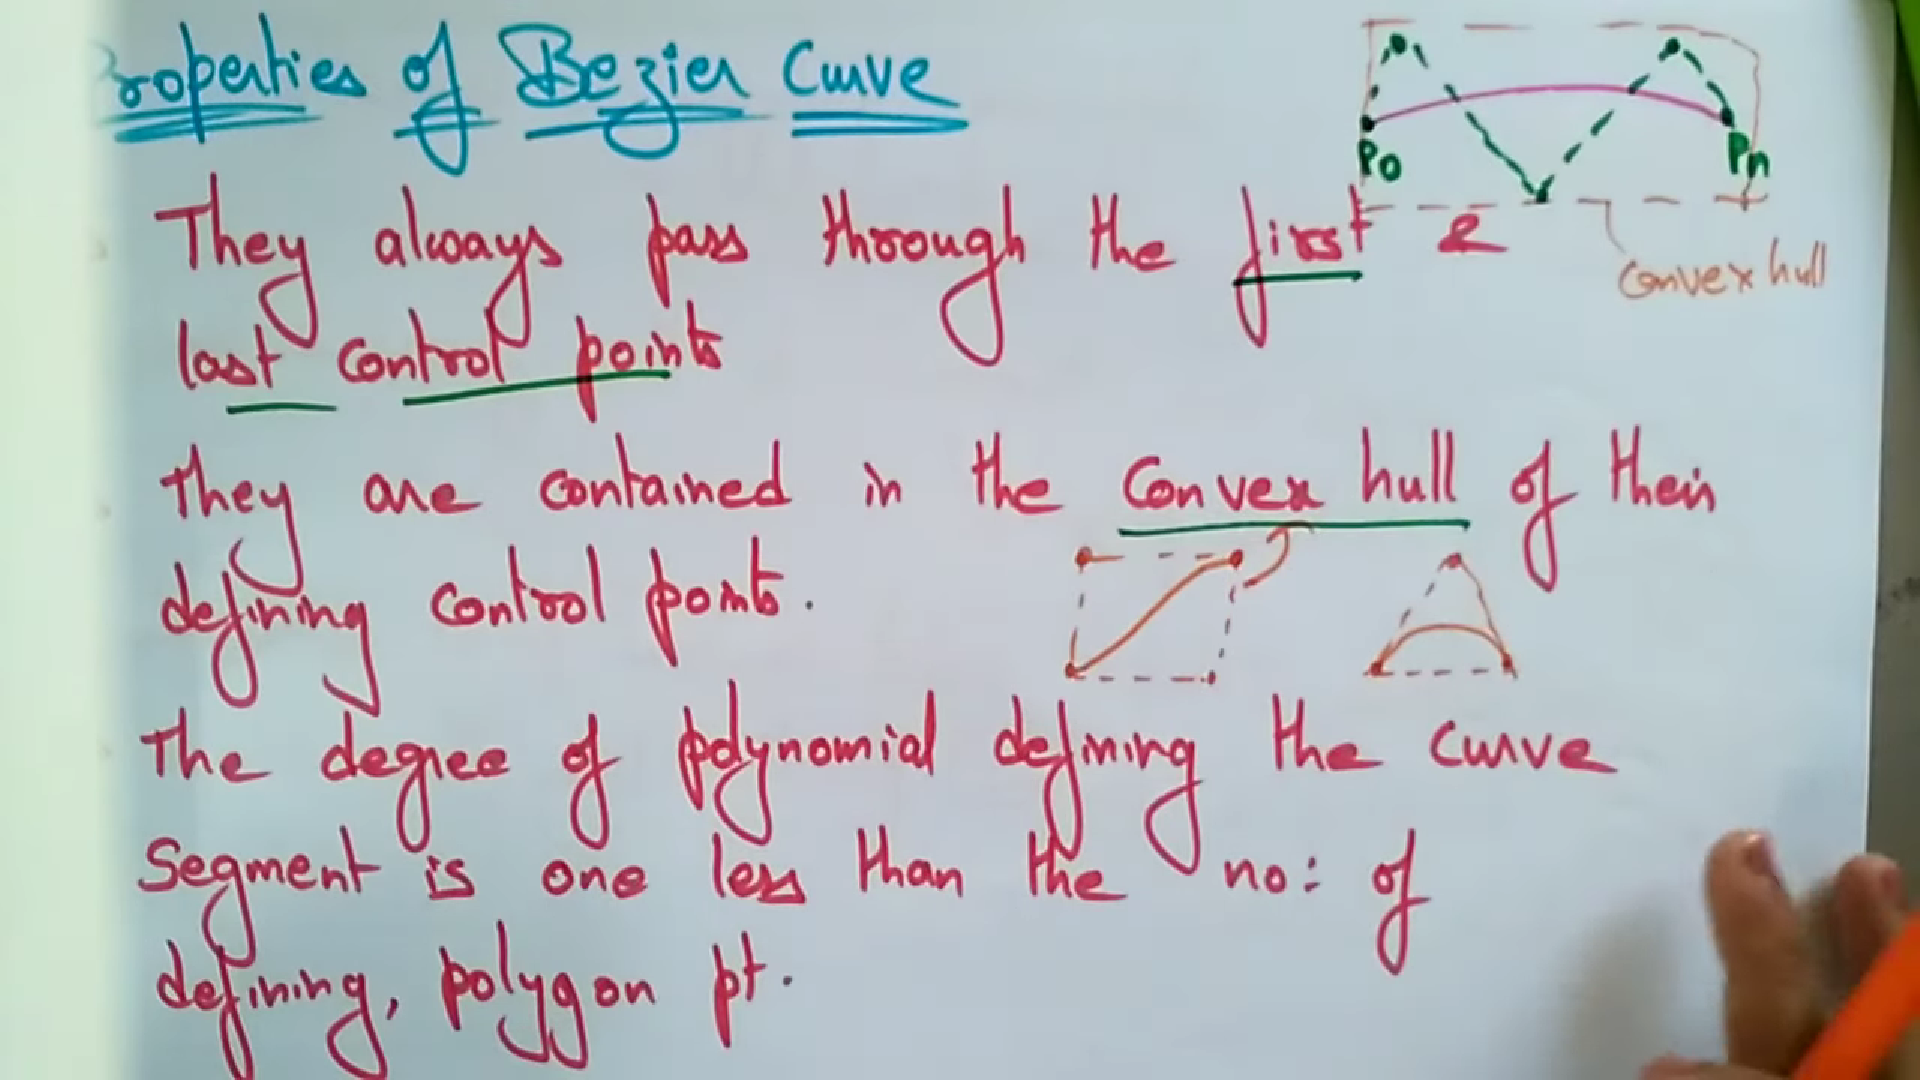 Properties of Bezier Curve
P0
Pn
They always pass through the first &
convex hull
last control points
They are contained in the convex hull of their
defining control points.
The degree of polynomial defining the curve
segment is one less than the no: of
defining, polygon pt.